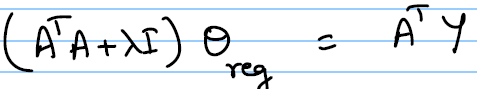 (AᵀA + λI) θ_reg = Aᵀ Y